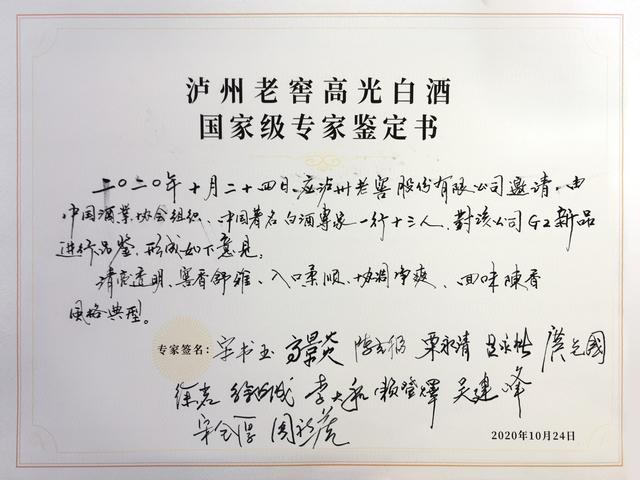 泸州老窖高光白酒
国家级专家鉴定书
二〇二〇年十月二十四日，应泸州老窖股份有限公司邀请，由
中国酒业协会组织、中国著名白酒專家一行十三人，對该公司G2新品
进行品鉴，形成如下意见。
清澈透明、窖香舒雅、入口柔顺、协调净爽、回味陳香
風格典型。
专家签名：宋书玉 高景炎 栗永清 吕永杜
徐岩 李大和 赖登燡 吴建峰
宋全厚
2020年10月24日